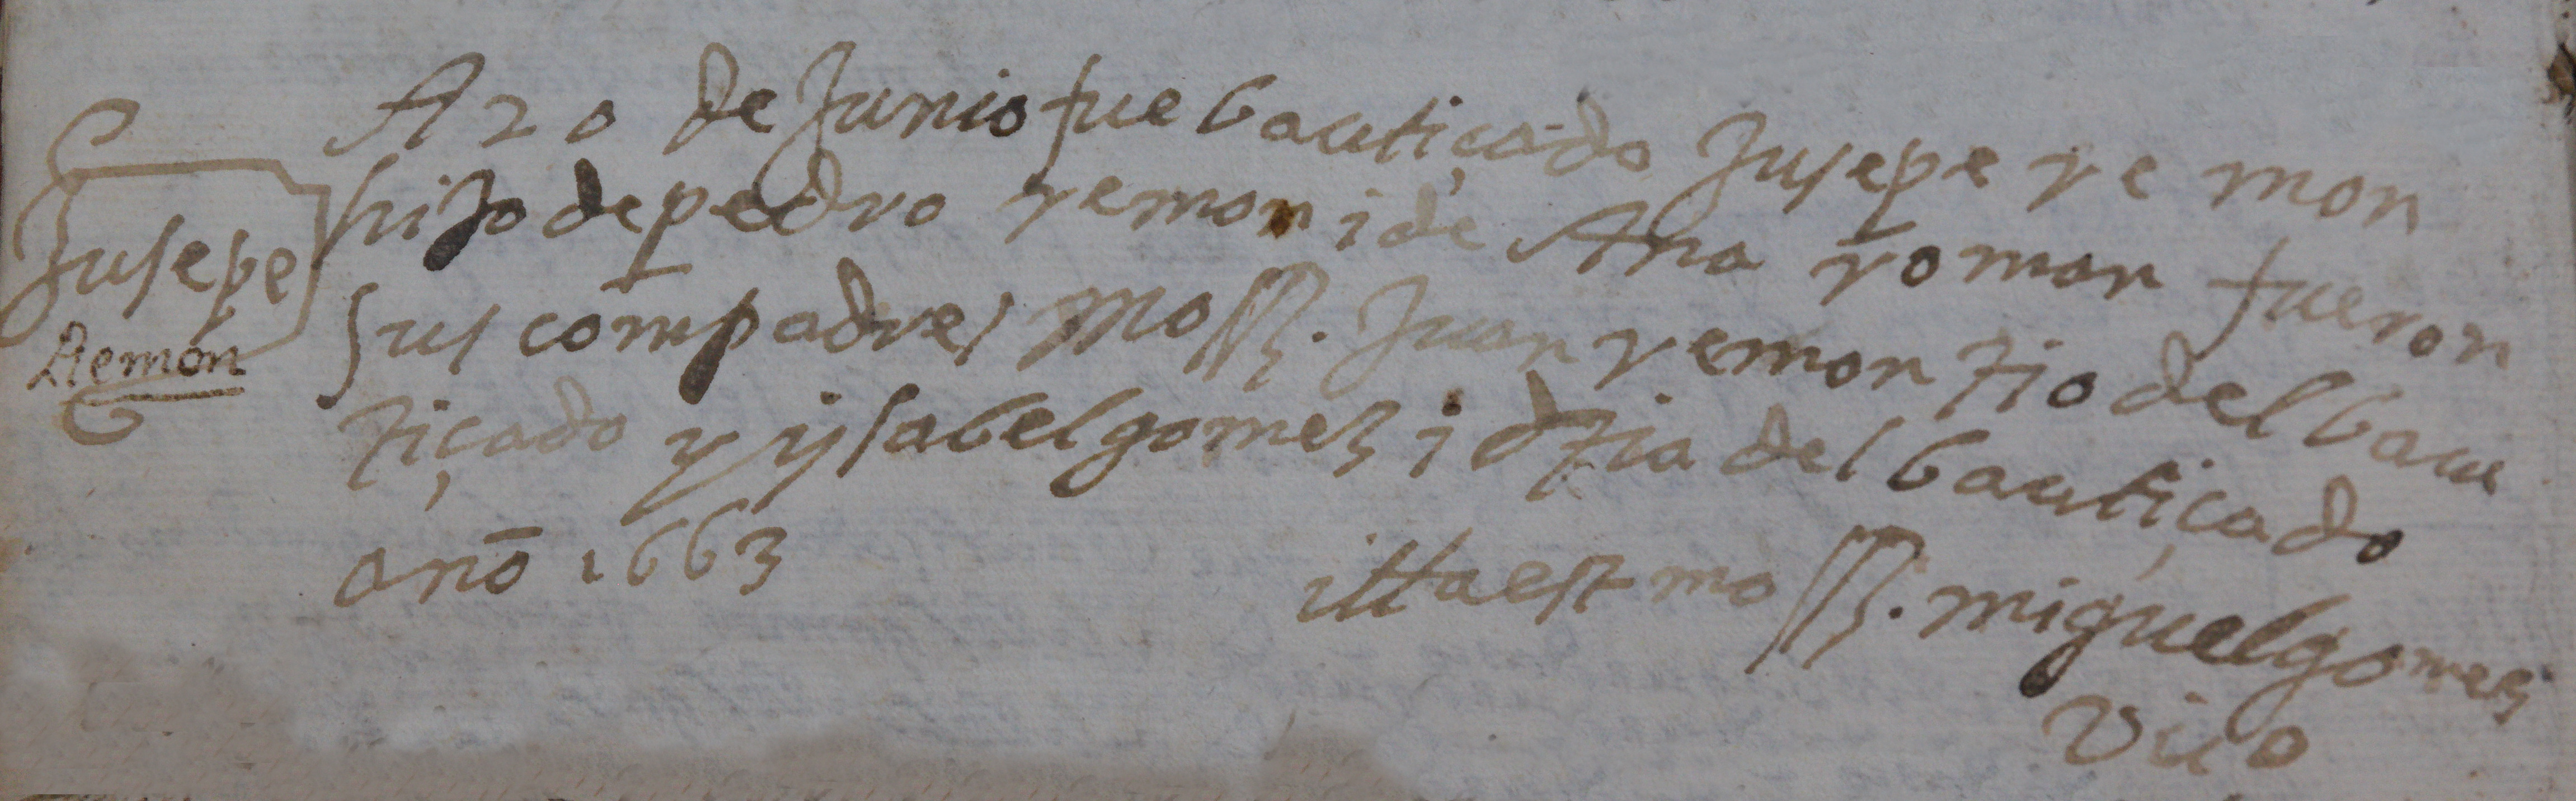 Jusepe
Remon
A 20 de Junio fue bautiçado Jusepe remon
hijo de pedro remon i de Ana roman fueron
sus compadres Moss. Juan remon tio del bau
tiçado y ysabel gomez i tia del bautiçado
anō 1663
itta est mo ss. miguel gomez
Vico